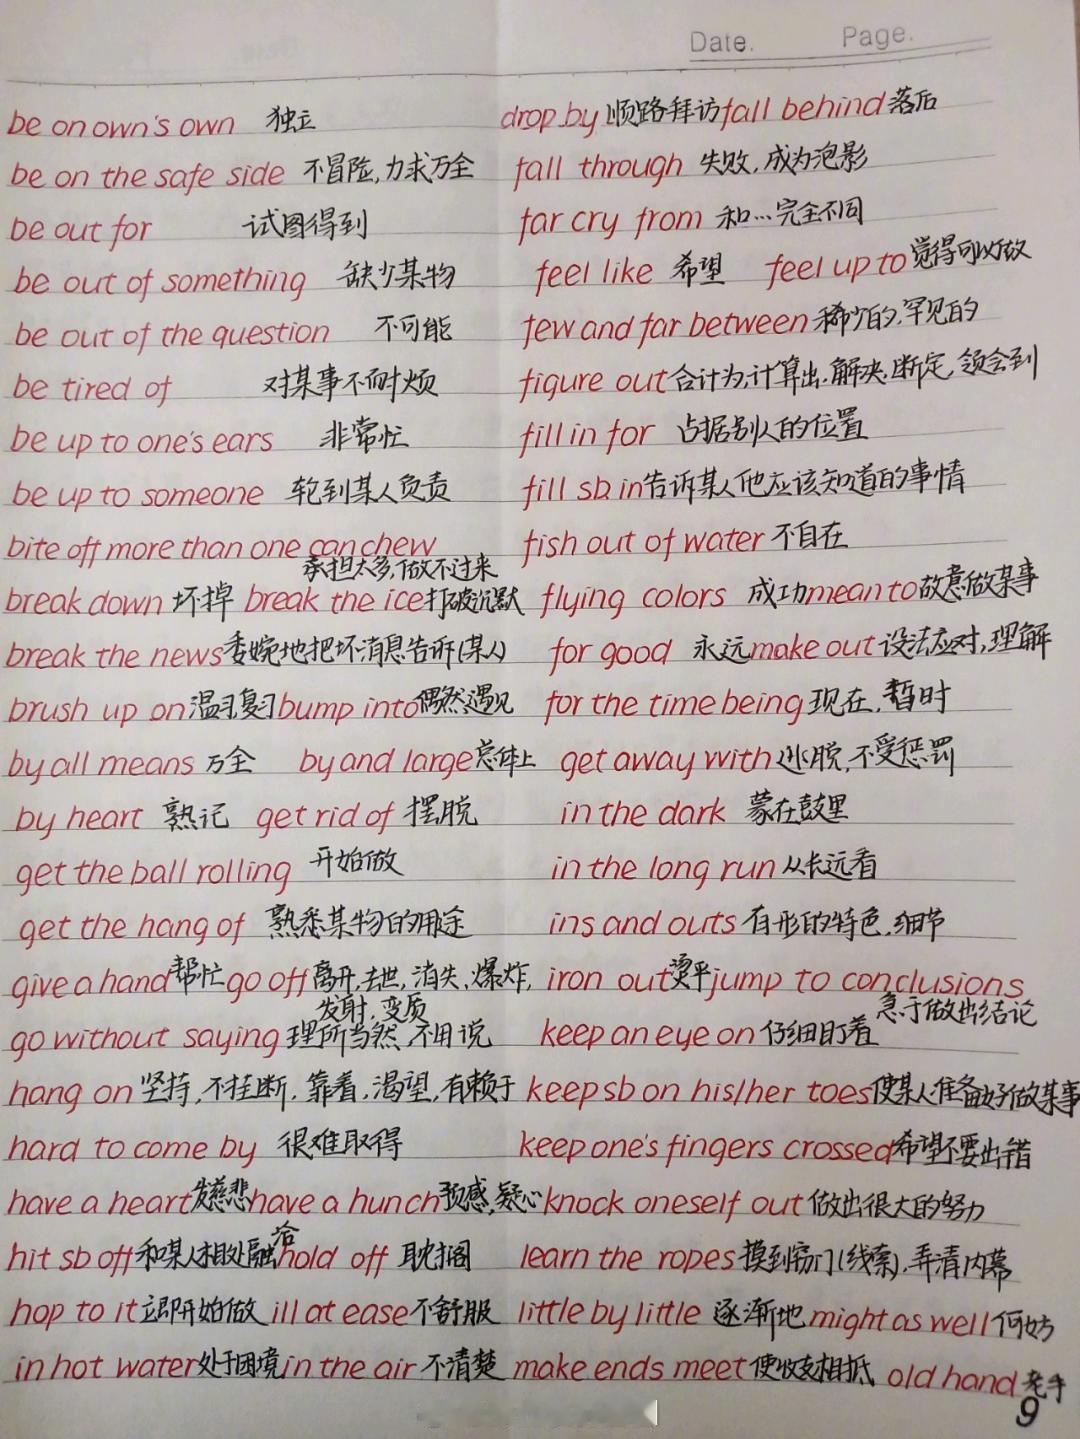 Date. Page.
be on own's own 独立
be on the safe side 不冒险,力求万全
be out for 试图得到
be out of something 缺少某物
be out of the question 不可能
be tired of 对某事不耐烦
be up to one's ears 非常忙
be up to someone 轮到某人负责
bite off more than one can chew
承担太多,做不过来
break down 坏掉 break the ice 打破沉默
break the news 委婉地把坏消息告诉(某人)
brush up on 温习,复习 bump into 偶然遇见
by all means 万全 by and large 总体上
by heart 熟记 get rid of 摆脱
get the ball rolling 开始做
get the hang of 熟悉某物的用途
give a hand 帮忙 go off 离开,去世,消失,爆炸,
发射,变质
go without saying 理所当然,不用说
hang on 坚持,不挂断,靠着,渴望,有赖于
hard to come by 很难取得
have a heart 发慈悲 have a hunch 预感,疑心
hit sb off 和某人相处融洽 hold off 耽搁
hop to it 立即开始做 ill at ease 不舒服
in hot water 处于困境 in the air 不清楚
drop by 顺路拜访 fall behind 落后
fall through 失败,成为泡影
far cry from 和…完全不同
feel like 希望 feel up to 觉得可以做
few and far between 稀少的,罕见的
figure out 合计为,计算出,解决,断定,领会到
fill in for 占据别人的位置
fill sb in 告诉某人他应该知道的事情
fish out of water 不自在
flying colors 成功 mean to 故意做某事
for good 永远 make out 设法应对,理解
for the time being 现在,暂时
get away with 逃脱,不受惩罚
in the dark 蒙在鼓里
in the long run 从长远看
ins and outs 有形的特色,细节
iron out 烫平 jump to conclusions
急于做出结论
keep an eye on 仔细盯着
keep sb on his/her toes 使某人准备好做某事
keep one's fingers crossed 希望不要出错
knock oneself out 做出很大的努力
learn the ropes 摸到窍门(线索),弄清内幕
little by little 逐渐地 might as well 何妨
make ends meet 使收支相抵 old hand 老手
9